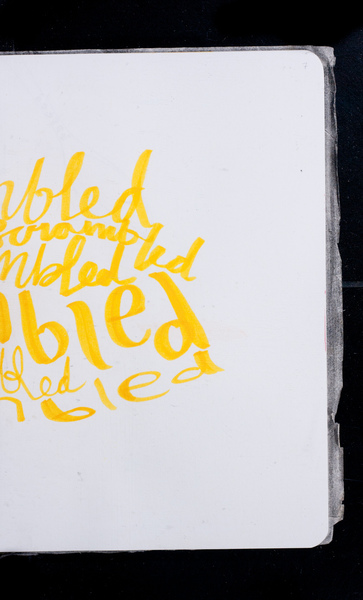 mbled
scrambled
mbled
mbled
bled
mbled